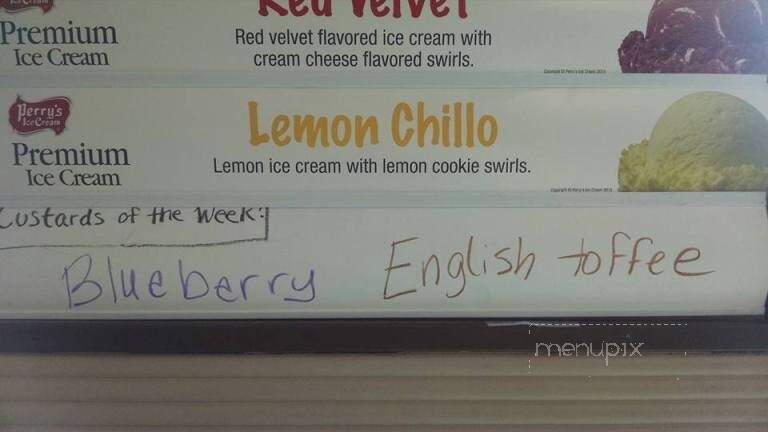 Premium
Ice Cream
Red Velvet
Red velvet flavored ice cream with
cream cheese flavored swirls.
Perry's
Ice Cream
Premium
Ice Cream
Lemon Chillo
Lemon ice cream with lemon cookie swirls.
Custards of the Week:
Blueberry
English toffee
menupix